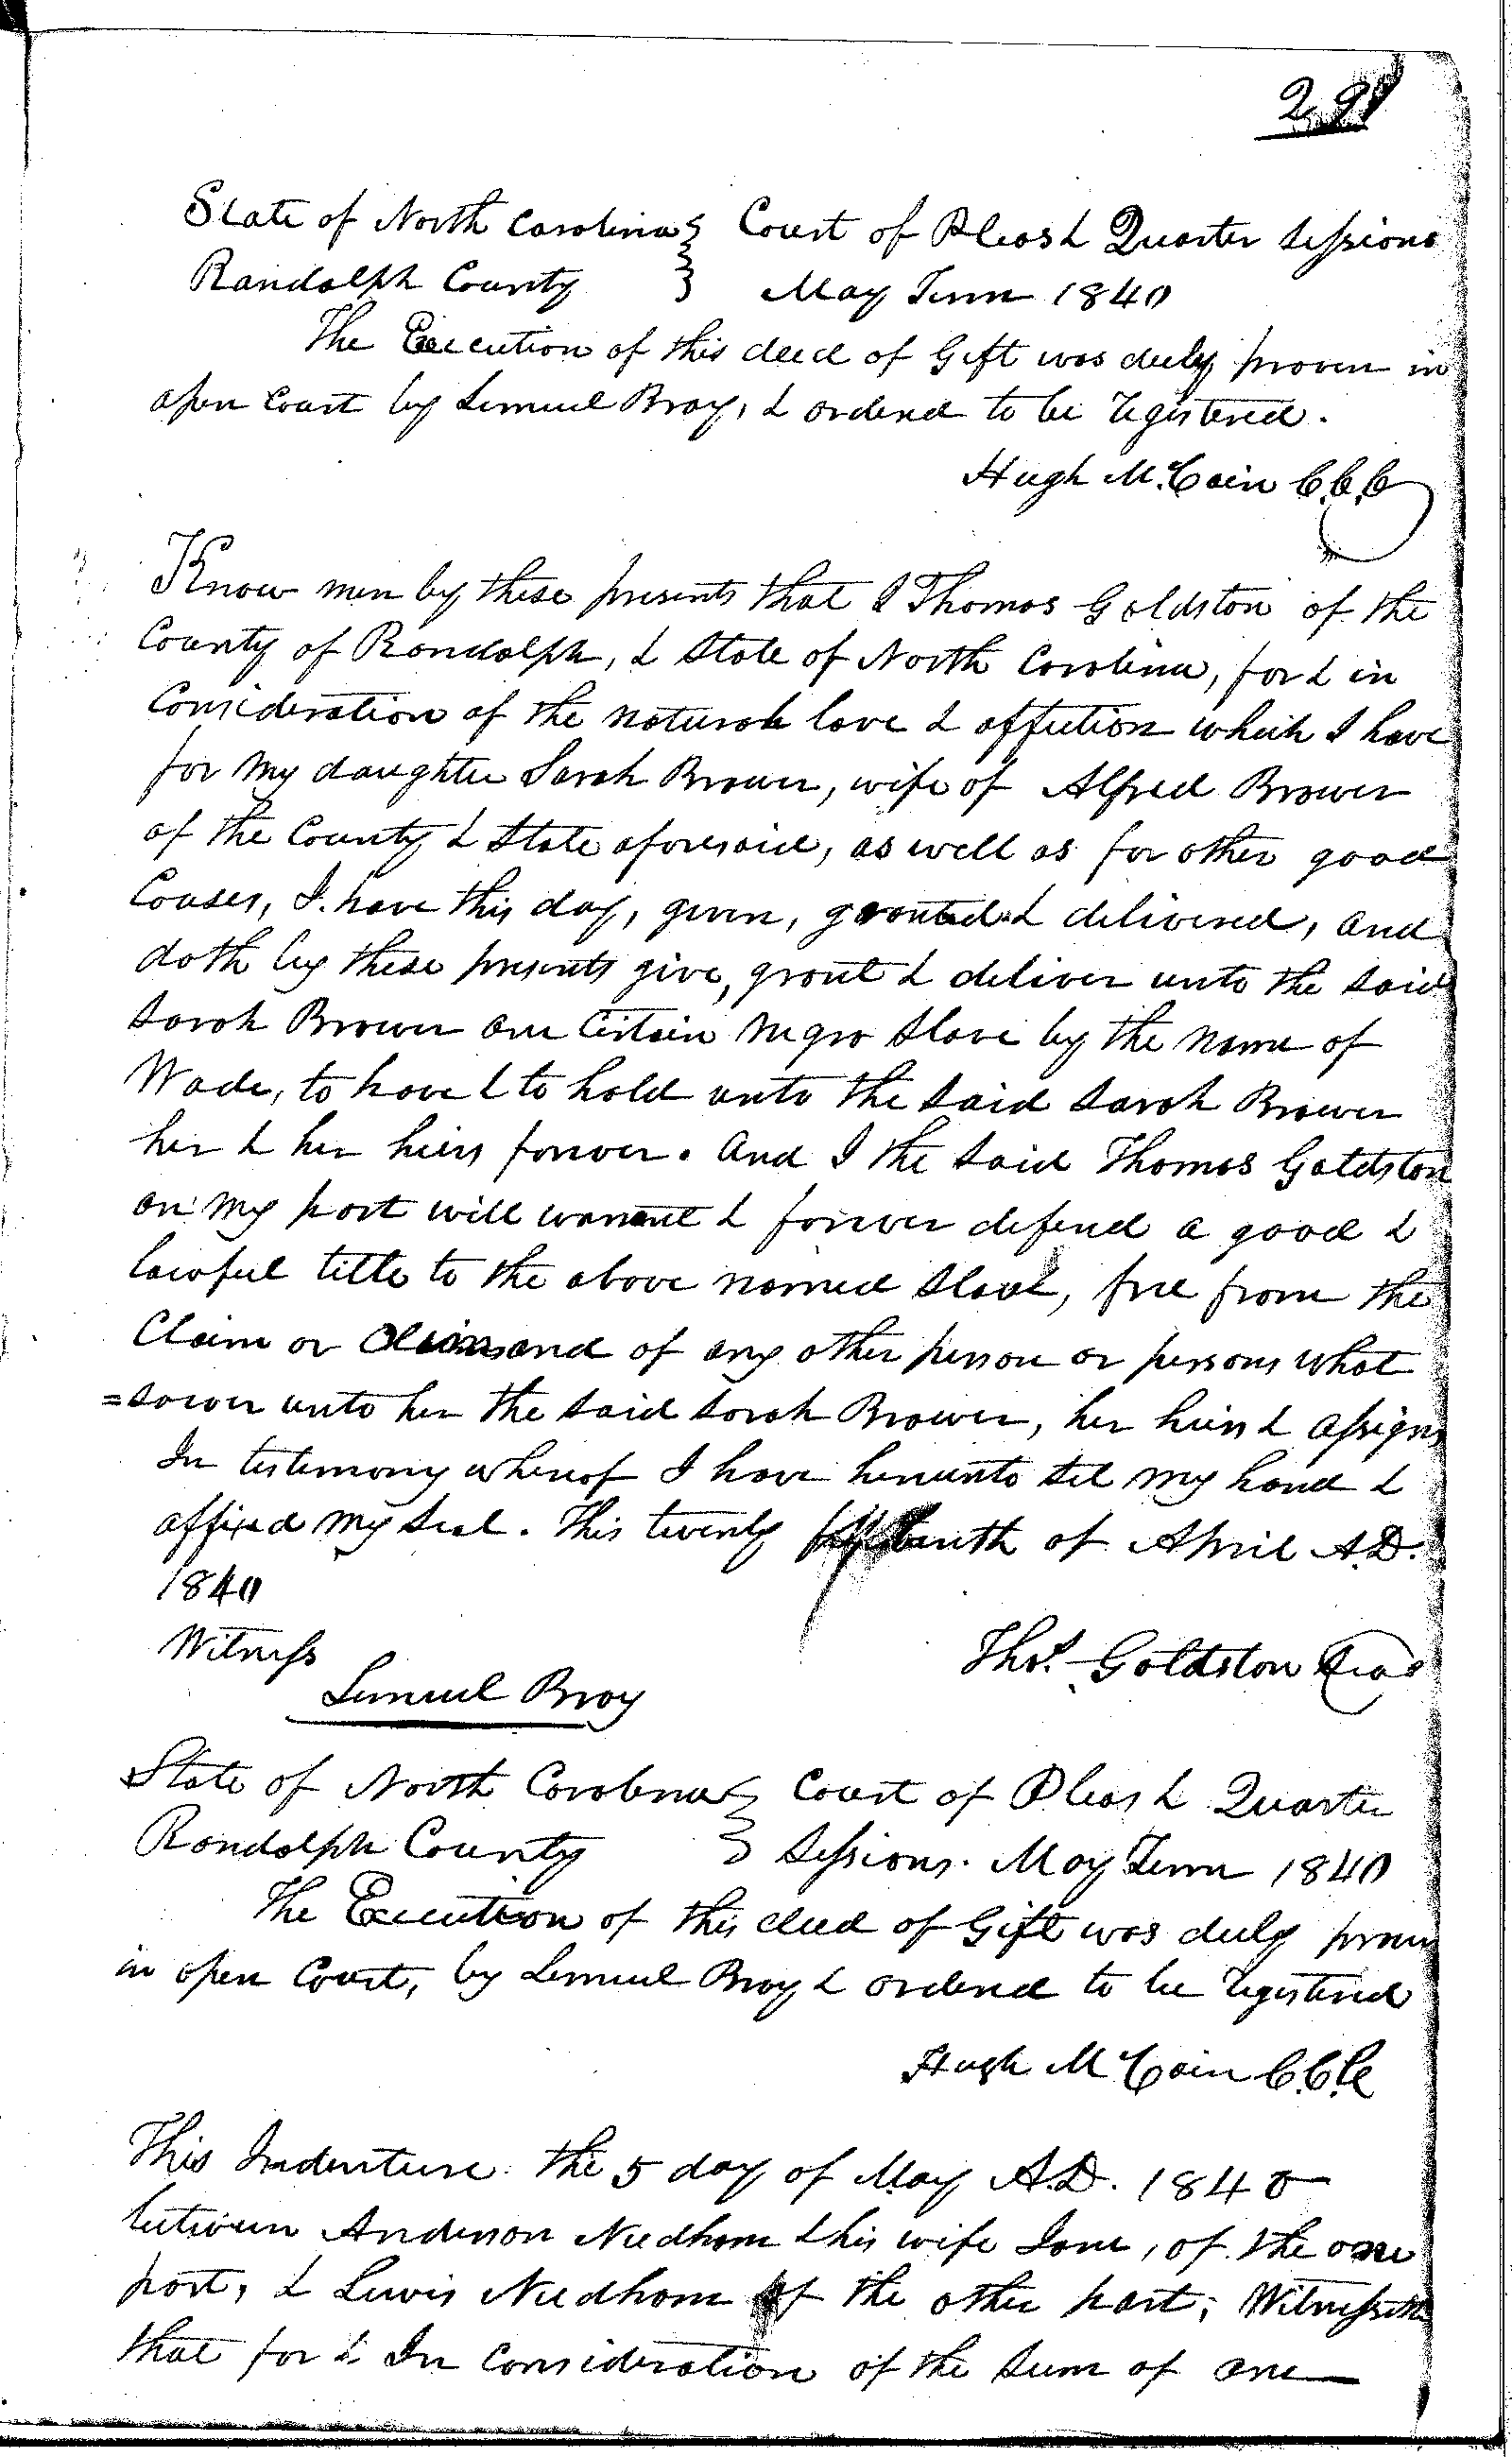 State of North Carolina } Court of Pleas & Quarter Sessions
Randolph County } May Term 1840
The Execution of this deed of Gift was duly proven in
open Court by Lemuel Bray, & ordered to be registered.
Hugh McCain C.C.C
Know men by these presents that I Thomas Goldston of the
County of Randolph, & State of North Carolina, for & in
Consideration of the natural love & affection which I have
for my daughter Sarah Brower, wife of Alfred Brower
of the County & State aforesaid, as well as for other good
Causes, I have this day, given, granted & delivered, and
doth by these presents give, grant & deliver unto the said
Sarah Brower one Certain negro slave by the name of
Wade, to have & to hold unto the said Sarah Brower
her & her heirs forever. And I the said Thomas Goldston
on my part will warrant & forever defend a good &
lawful title to the above named slave, free from the
Claim or demand of any other person or persons what
=soever unto her the said Sarah Brower, her heirs & assigns
In testimony whereof I have hereunto set my hand &
affixed my seal. This twenty of April A.D.
1840
Witness
Thos. Goldston Seal
Lemuel Bray
State of North Carolina } Court of Pleas & Quarter
Randolph County } Sessions. May Term 1840
The Execution of this deed of Gift was duly proven
in open Court, by Lemuel Bray & ordered to be registered
Hugh McCain C.C.C
This Indenture the 5 day of May A.D. 1840
between Anderson Needham & his wife Jane, of the one
part, & Lewis Needham of the other part; Witnesseth
that for & In Consideration of the sum of one